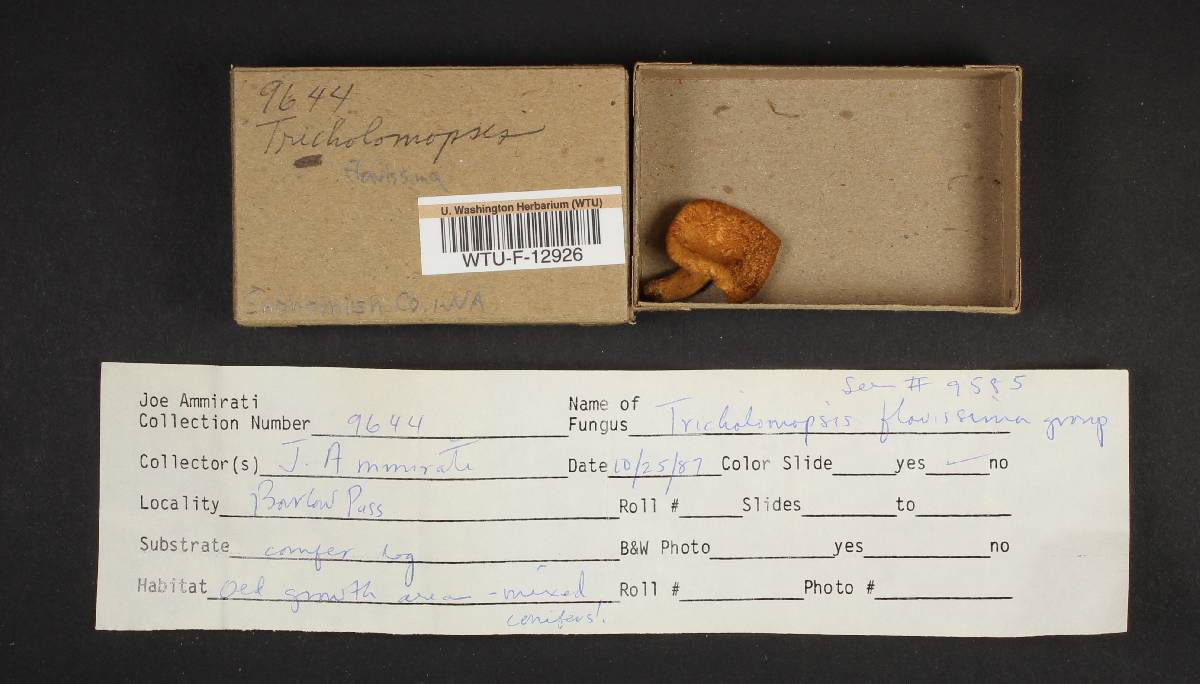 9644
Tricholomopsis
flavissima
U. Washington Herbarium (WTU)
WTU-F-12926
Snohomish Co., WA
See # 9585
Joe Ammirati
Collection Number 9644
Name of Fungus Tricholomopsis flavissima group
Collector(s) J. Ammirati Date 10/25/87 Color Slide yes ✓ no
Locality Barlow Pass Roll # Slides to
Substrate conifer log B&W Photo yes no
Habitat Old growth area - mixed conifers! Roll # Photo #